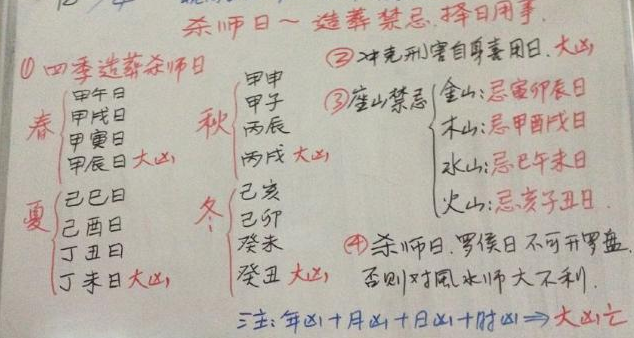 杀师日～造葬禁忌.择日用事.
① 四季造葬杀师日
春
甲午日
甲戌日
甲寅日
甲辰日 大凶
夏
己巳日
己酉日
丁丑日
丁未日 大凶
秋
甲申
甲子
丙辰
丙戌 大凶
冬
己亥
己卯
癸未
癸丑 大凶
② 冲克刑害自身喜用日.大凶
③ 座山禁忌
金山:忌寅卯辰日
木山:忌甲酉戌日
水山:忌巳午未日
火山:忌亥子丑日.
④ 杀师日.罗侯日不可开罗盘.
否则对風水师大不利.
注:年凶+月凶+日凶+时凶⇒大凶亡